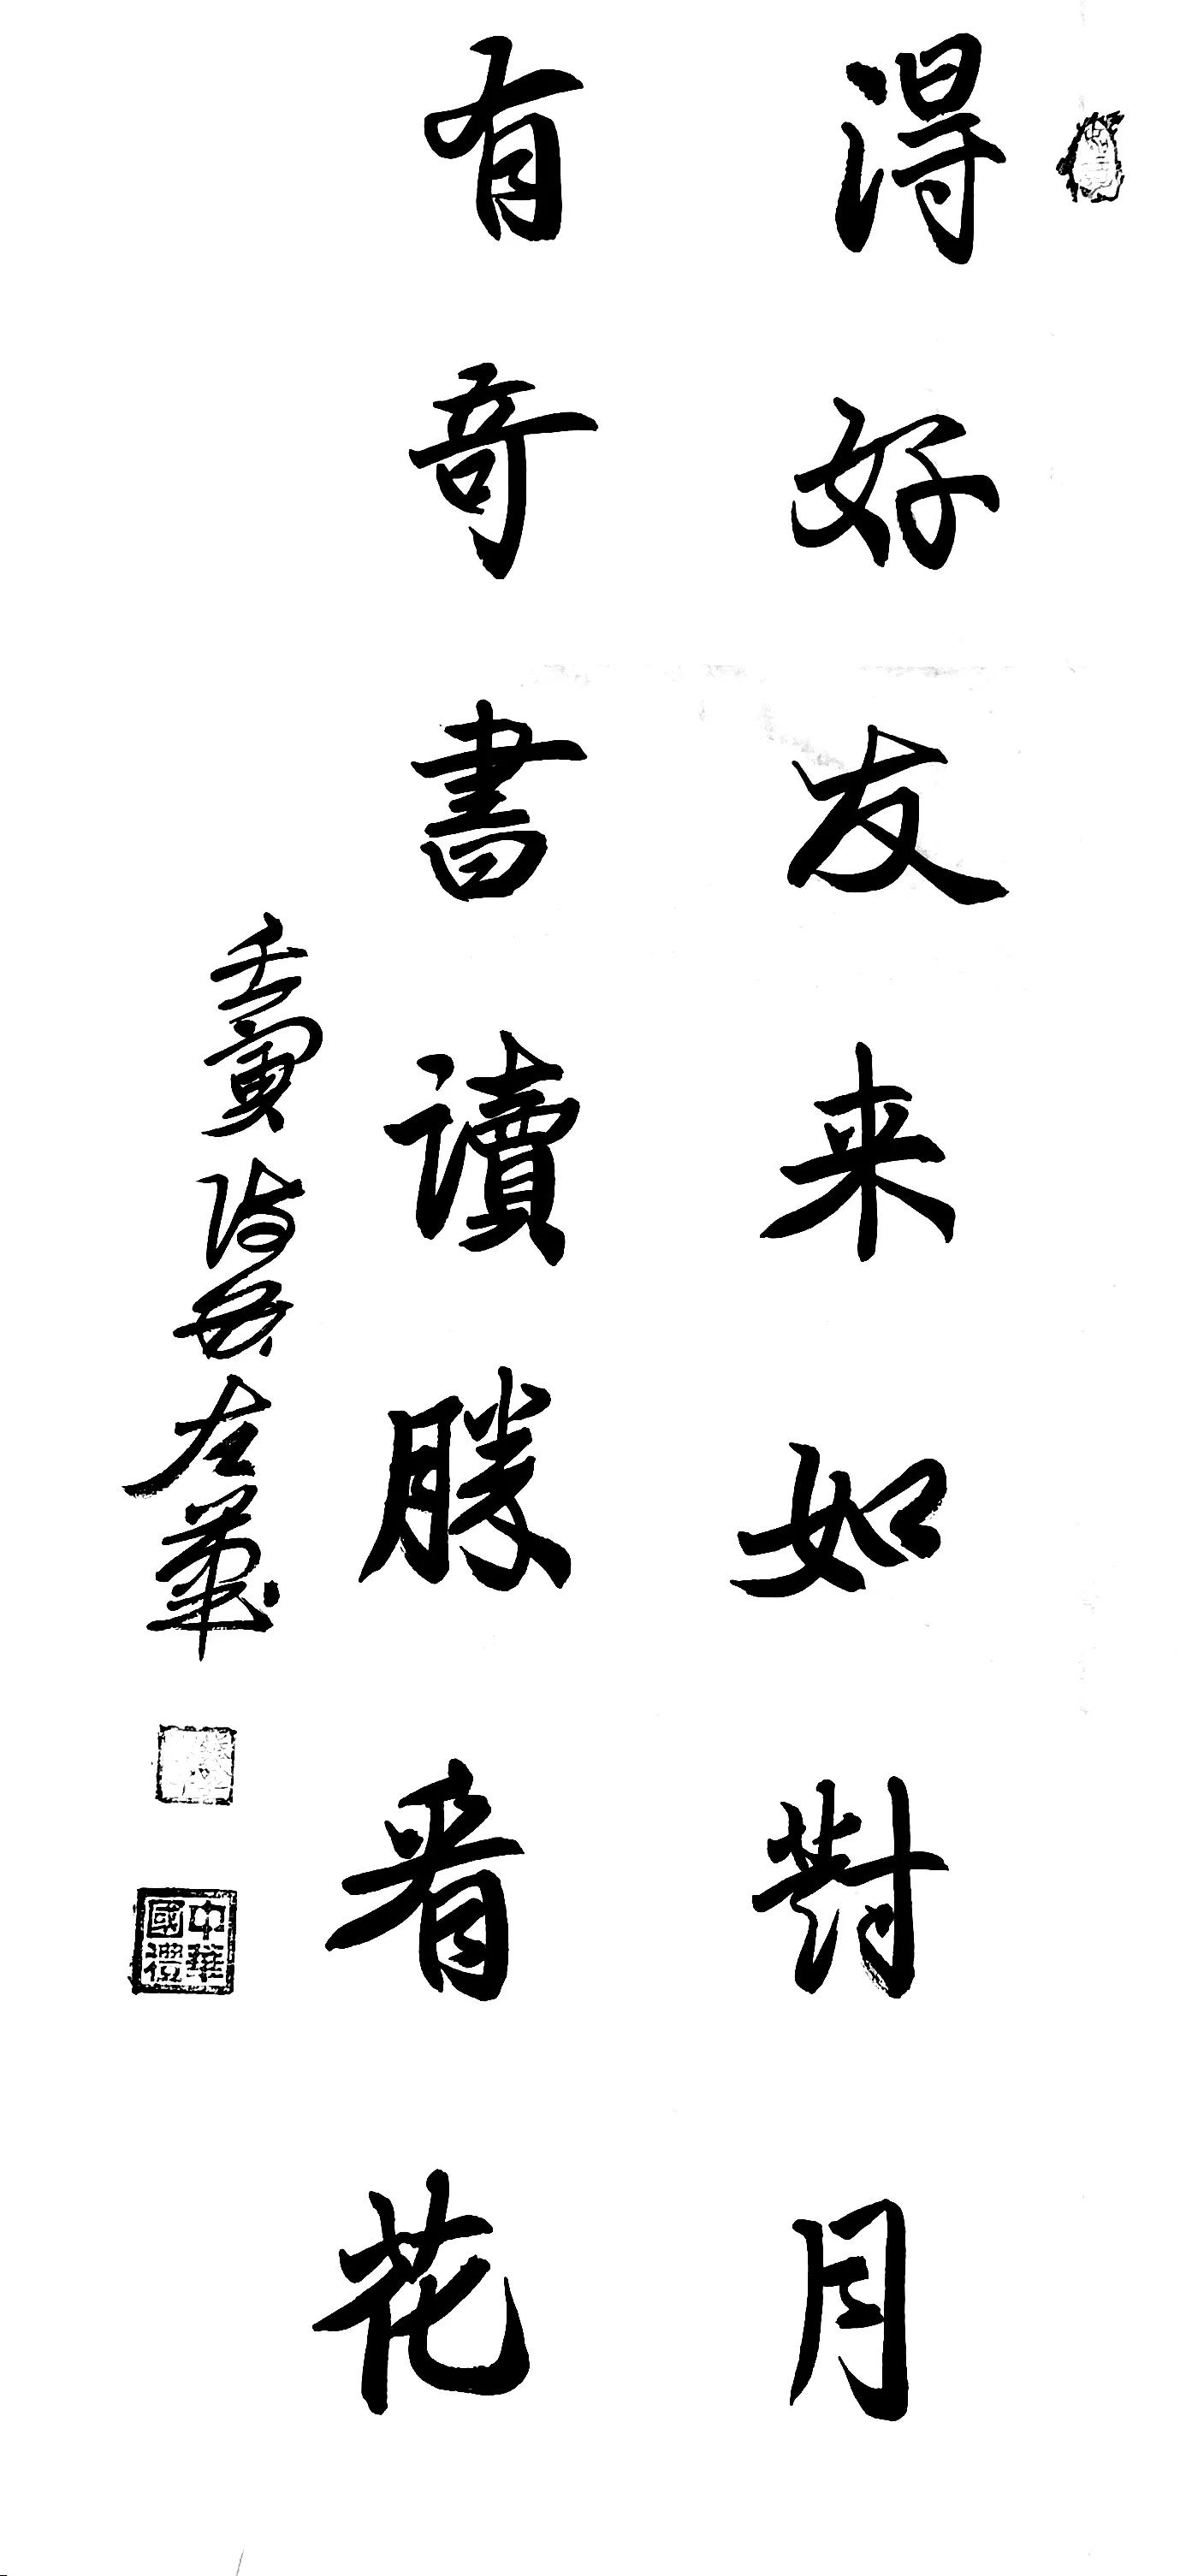 得好友来如對月
有奇書讀勝看花
壬寅 左華
中華國禮